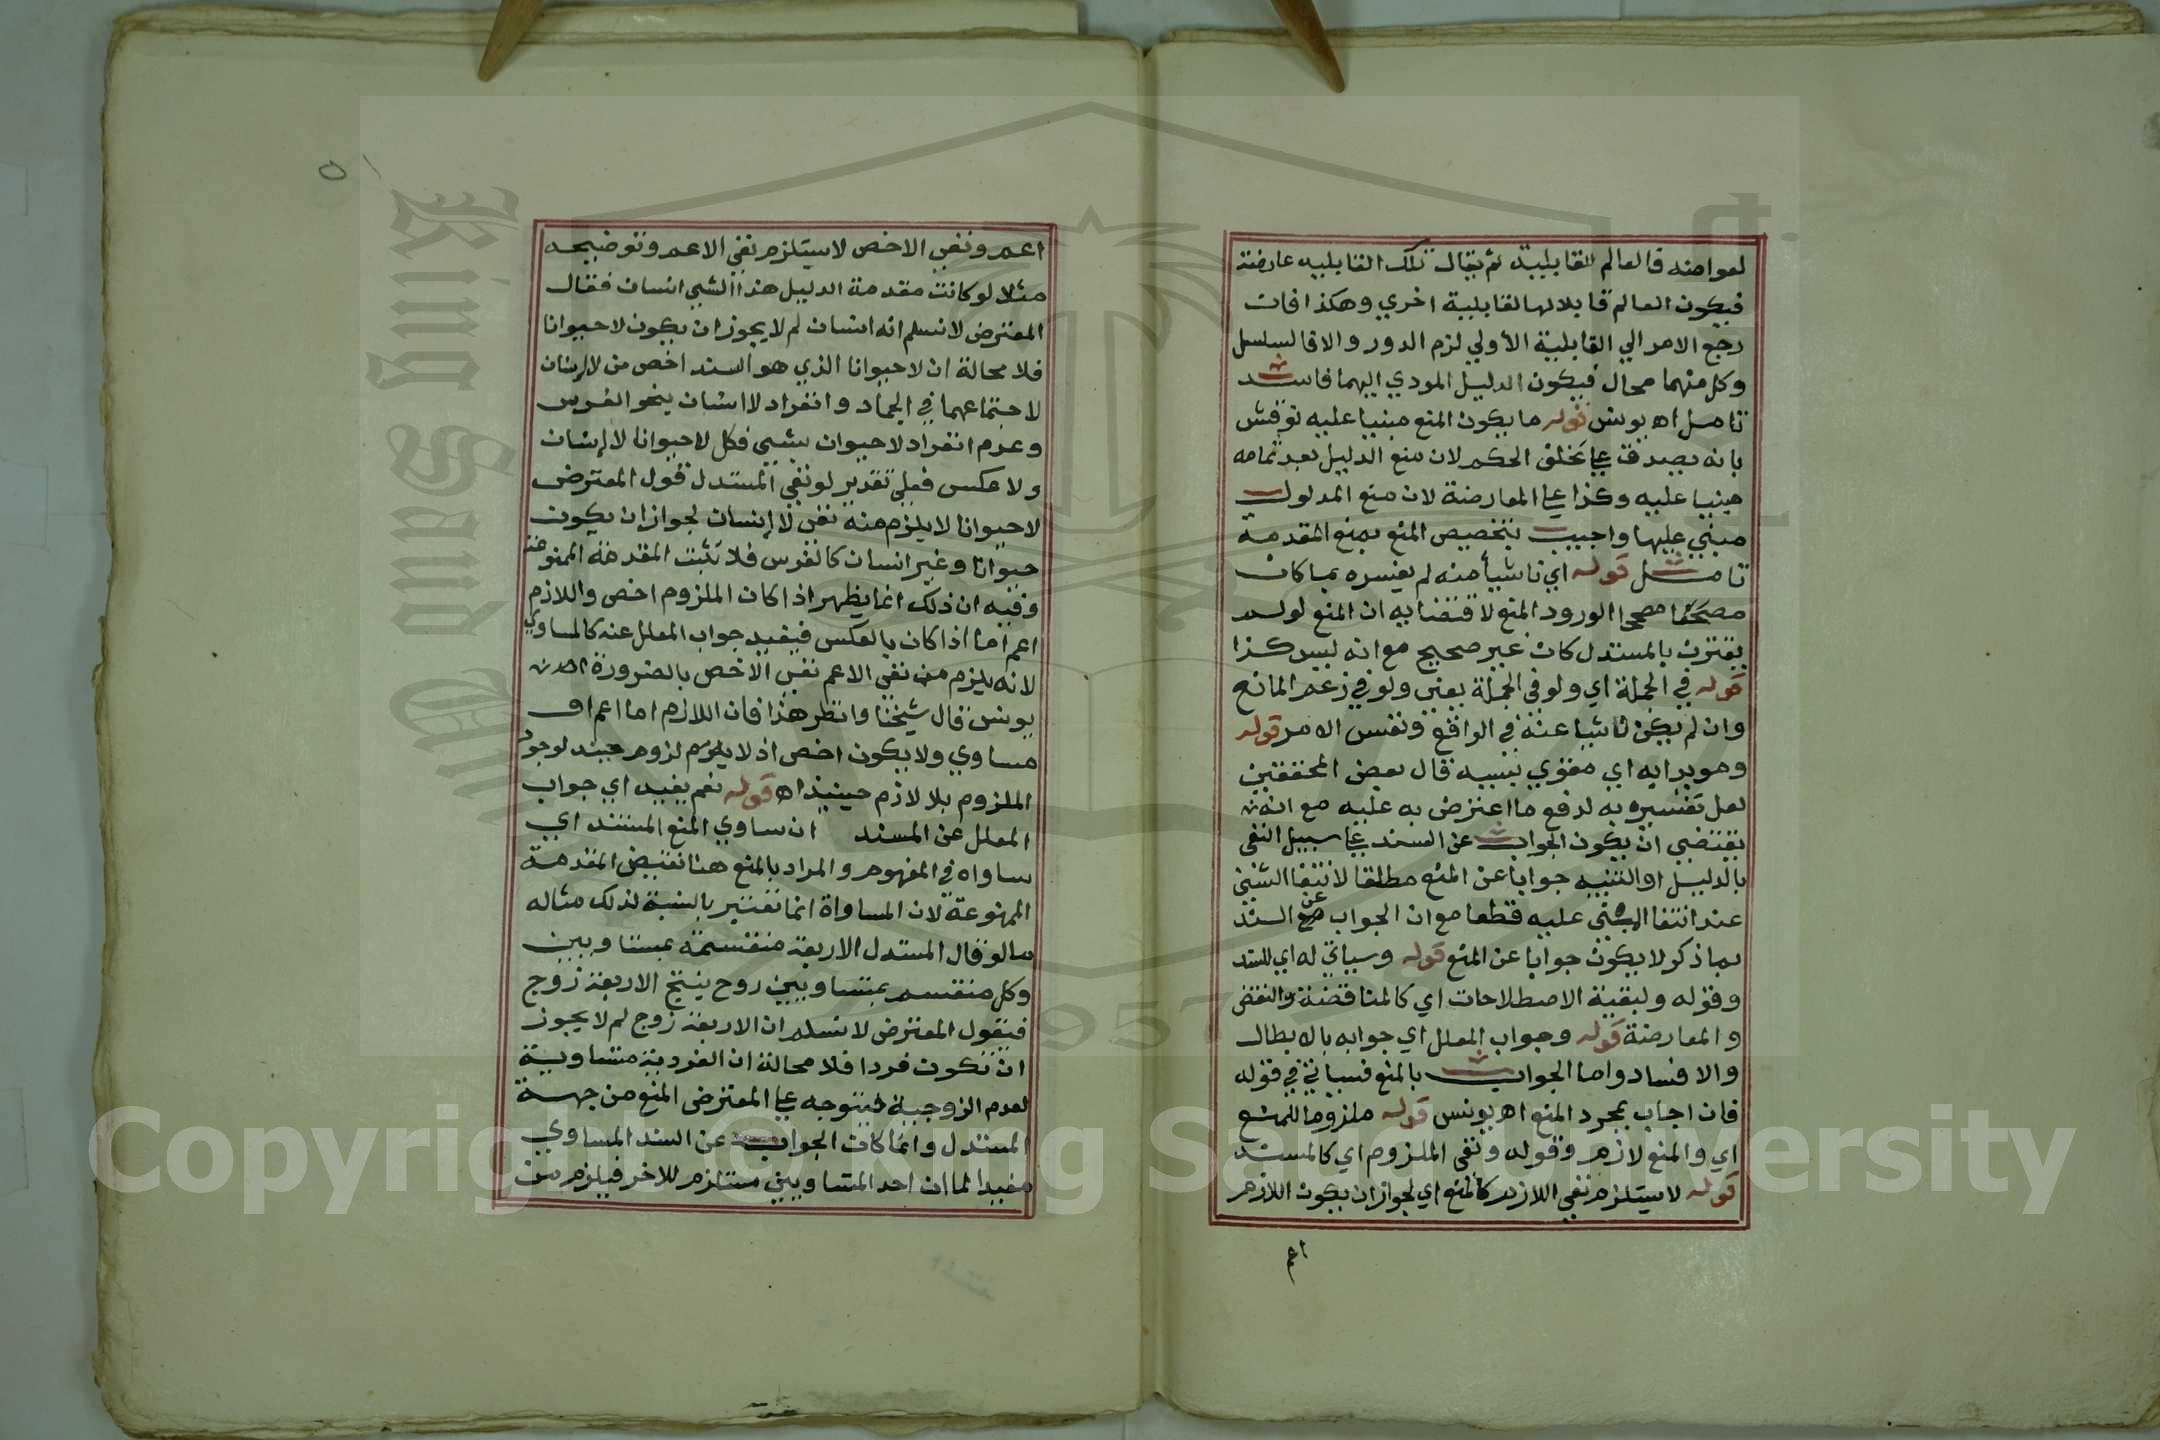 لعوامنه فالعالم للقابلية ثم يقال تلك القابليه عارضة
فيكون العالم قابلا لها لقابلية اخري وهكذا فان
رجع الامر الي القابلية الأولي لزم الدور والا فالسلسل
وكل منهما محال فيكون الدليل المودي اليهما فاسد
تامل اه يونس قوله ما يكون المنع مبنيا عليه نوقش
بانه يصدق علي تخلف الحكم لان منع الدليل بعد تمامه
مبنيا عليه وكذا علي المعارضة لان منع المدلول
مبني عليها واجيب بتخصيص المنع بمنع المقدمة
تامل قوله اي ناشيأ منه لم يفسره بما كان
مصححا لورود المنع لاقتضايه ان المنع لو لم
يقترن بالمستدل كان غير صحيح مع انه ليس كذا
قوله في الجملة اي ولو في الجملة يعني ولو في زعم المانع
وان لم يكن ناشيا عنه في الواقع ونفس الامر قوله
وهو يرايه اي مقوي بنسبه قال بعض المحققين
لعل تفسيره به لدفع ما اعترض به عليه مع انه
يقتضي ان يكون الجواب عن السند علي سبيل النفي
بالدليل او التنبيه جوابا عن المنع مطلقا لانتفا الشئ
عند انتفا المبني عليه قطعا مع ان الجواب عن السند
بما ذكر لا يكون جوابا عن المنع قوله وسياتي له اي للسند
وقوله ولبقية الاصطلاحات اي كالمناقضة والنقض
والمعارضة قوله وجواب المعلل اي جوابه بالابطال
والافساد واما الجواب بالمنع فسياتي في قوله
فان اجاب بمجرد المنع اه يونس قوله ملزوما للمنع
اي والمنع لازم وقوله ونفي الملزوم اي كالمسند
قوله لا يستلزم نفي اللازم كالمنع اي لجواز ان يكون اللازم
اعم
٥
اعم ونفي الاخص لا يستلزم نفي الاعم وتوضيحه
مثلا لو كانت مقدمة الدليل هذا الشي انسان فقال
المعترض لا نسلم انه انسان لم لا يجوز ان يكون لا حيوانا
فلا محالة ان لا حيوانا الذي هو السند اخص من لا انسان
لاجتماعهما في الجماد وانفراد لا انسان بنحو الفرس
وعدم انفراد لا حيوان بشيي فكل لا حيوانا لا إنسان
ولا عكس فعلي تقدير لو نفي المستدل قول المعترض
لا حيوانا لا يلزم منه نفي لا إنسان لجواز ان يكون
حيوانا وغير انسان كالفرس فلا تثبت المقدمة الممنوعة
وفيه ان ذلك انما يظهر اذا كان الملزوم اخص واللازم
اعم اما اذا كان بالعكس فيفيد جواب المعلل عنه كالمساوي
لانه يلزم من نفي الاعم نفي الاخص بالضرورة اه من
يونس قال شيخنا وانظر هذا فان اللازم اما اعم او
مساوي ولا يكون اخص اذ لا يلزم لزوم حينيذ لوجود
الملزوم بلا لازم حينيذ اه قوله نعم يفيد اي جواب
المعلل عن المسند ان ساوي المنع المسند اي
ساواه في المفهوم والمراد بالمنع هنا نقيض المقدمة
الممنوعة لان المساواة انما تعتبر بالنسبة لذلك مثاله
ما لو قال المستدل الاربعة منقسمة بمتساويين
وكل منقسم بمتساويين زوج ينتج الاربعة زوج
فيقول المعترض لا نسلم ان الاربعة زوج لم لا يجوز
ان تكون فردا فلا محالة ان الفردية متساوية
لعدم الزوجية فيتوجه علي المعترض المنع من جهة
المستدل وانما كان الجواب عن السند المساوي
مفيدا لما ان احد المتساويين مستلزم للاخر فيلزم من
King Saud University
1957
Copyright © King Saud University